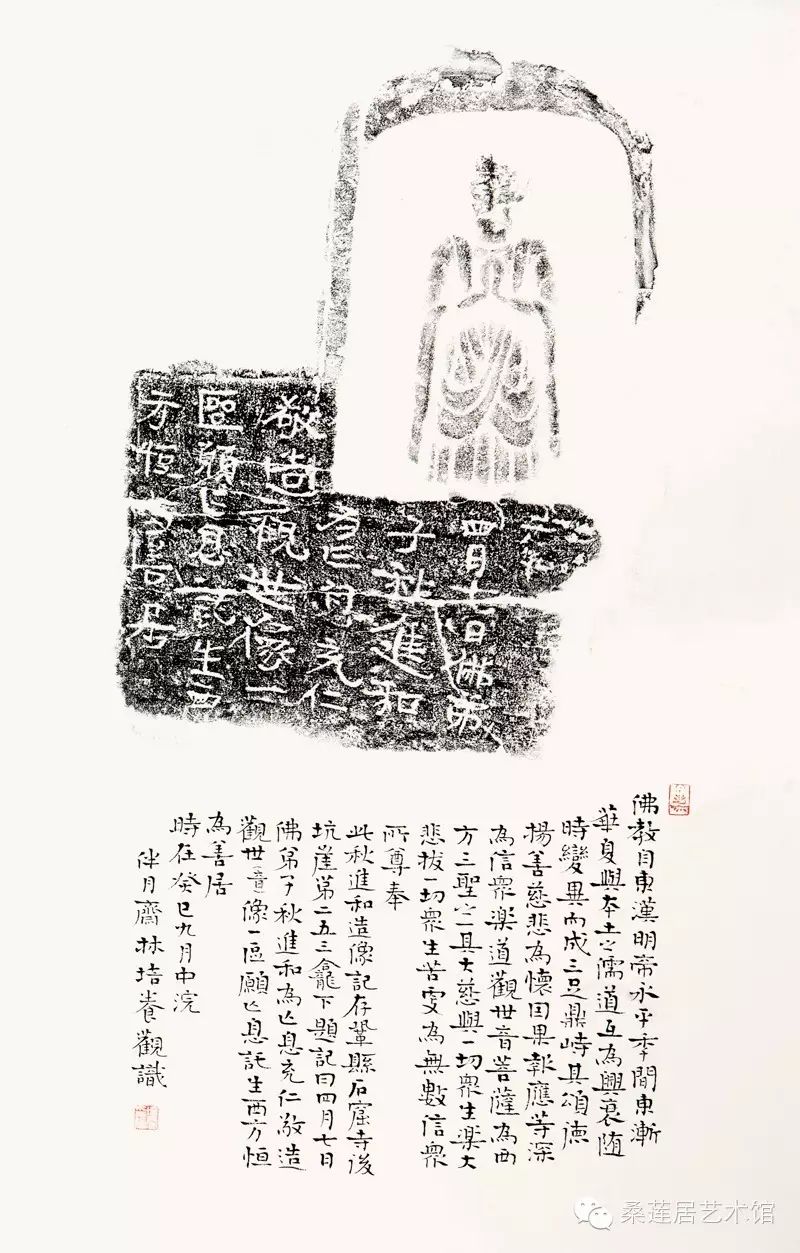 四月七日佛弟
子秋進和
為亡息充仁
敬造觀世像一
區願亡息託生西
方恒為善居
佛教自東漢明帝永平年間東漸
華夏與本土之儒道互為興衰隨
時變異而成三足鼎峙其頌德
揚善慈悲為懷因果報應等深
為信衆樂道觀世音菩薩為西
方三聖之一具大慈與一切衆生樂大
悲拔一切衆生苦更為無數信衆
所尊奉
此秋進和造像記存鞏縣石窟寺後
坑崖第二五三龕下題記曰四月七日
佛弟子秋進和為亡息充仁敬造
觀世音像一區願亡息託生西方恒
為善居
時在癸巳九月中浣
伴月齋林培養觀識
桑莲居艺术馆